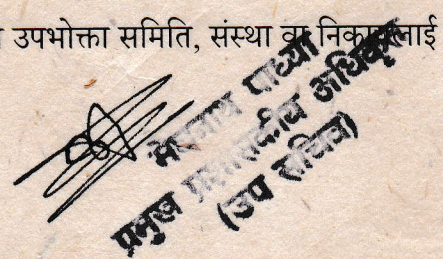 उपभोक्ता समिति, संस्था वा निकायलाई
पाध्या
प्रमुख प्रशासकीय अधिकृत
(उप सचिव)